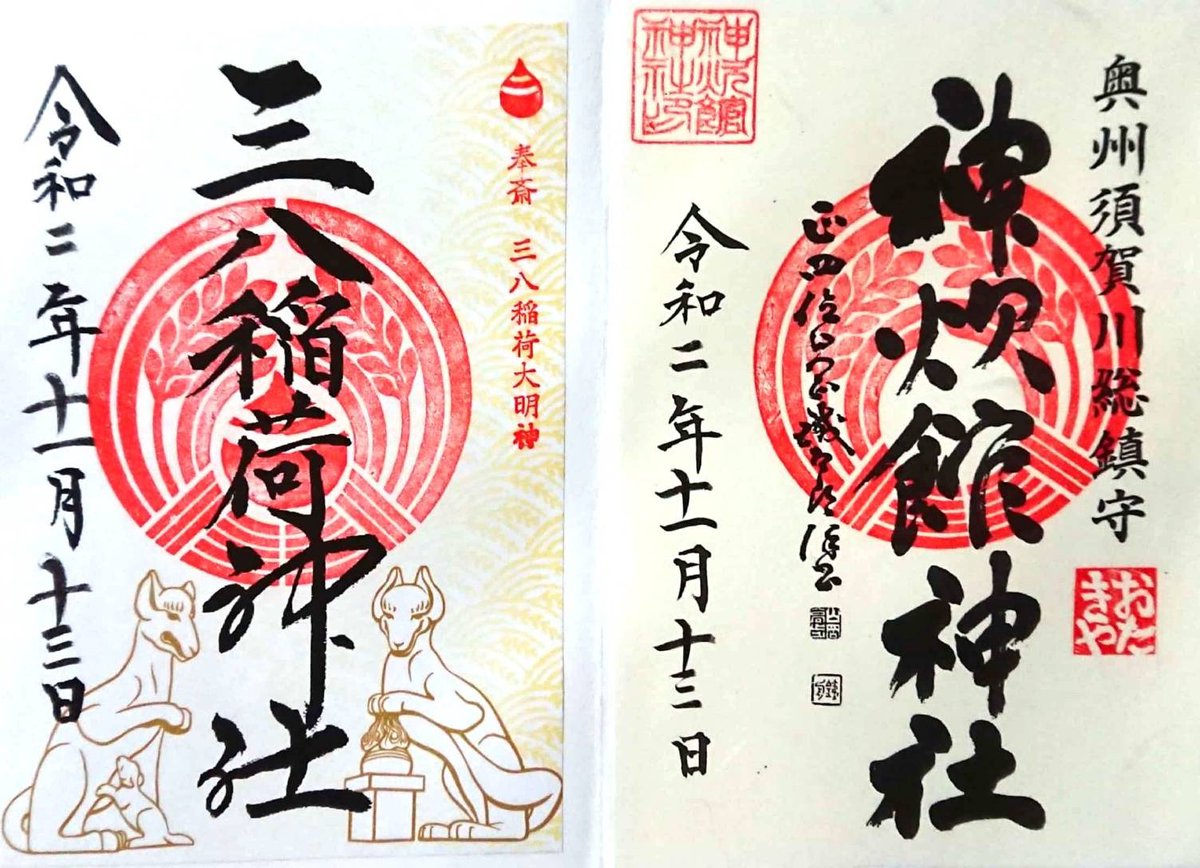 奥州須賀川総鎮守
おたきや
神炊館神社
正四位
令和二年十一月十三日
神炊館神社印
奉斎 三八稲荷大明神
三八稲荷神社
令和二年十一月十三日